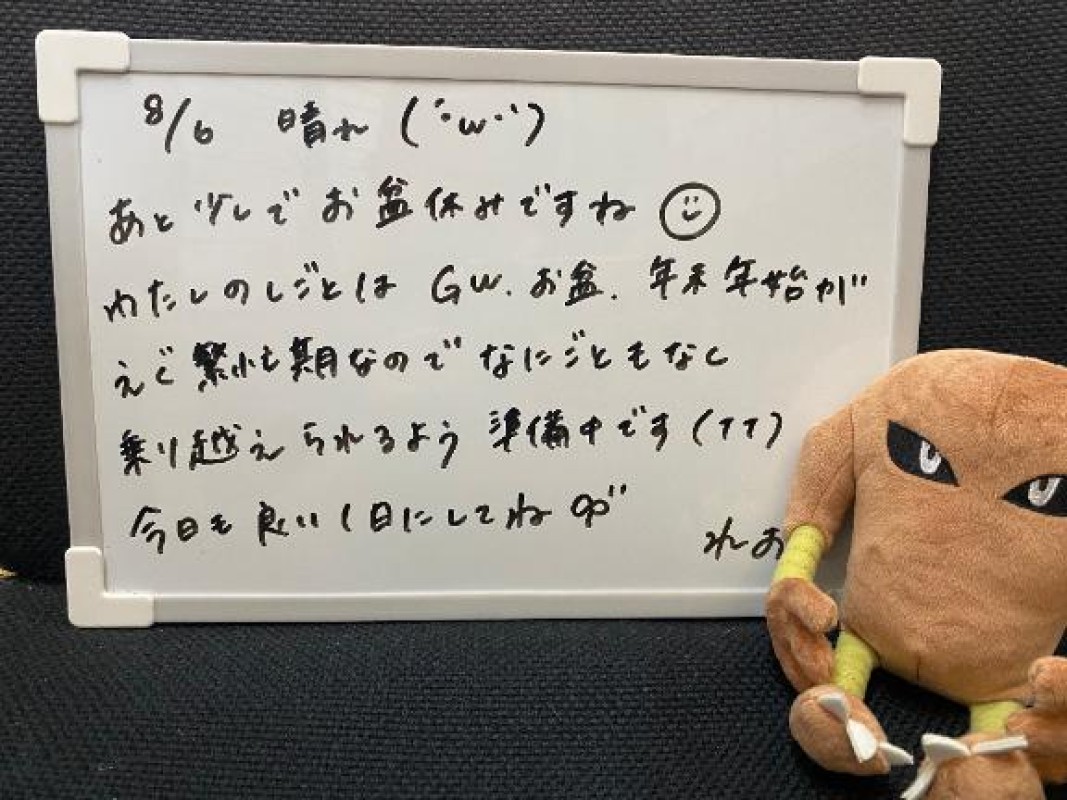 8/6 晴れ (´･ω･`)
あと少しでお盆休みですね
わたしのしごとは GW、お盆、年末年始が
えぐ繁忙期なのでなにごともなく
乗り越えられるよう準備中です(TT)
今日も良い1日にしてね
れお